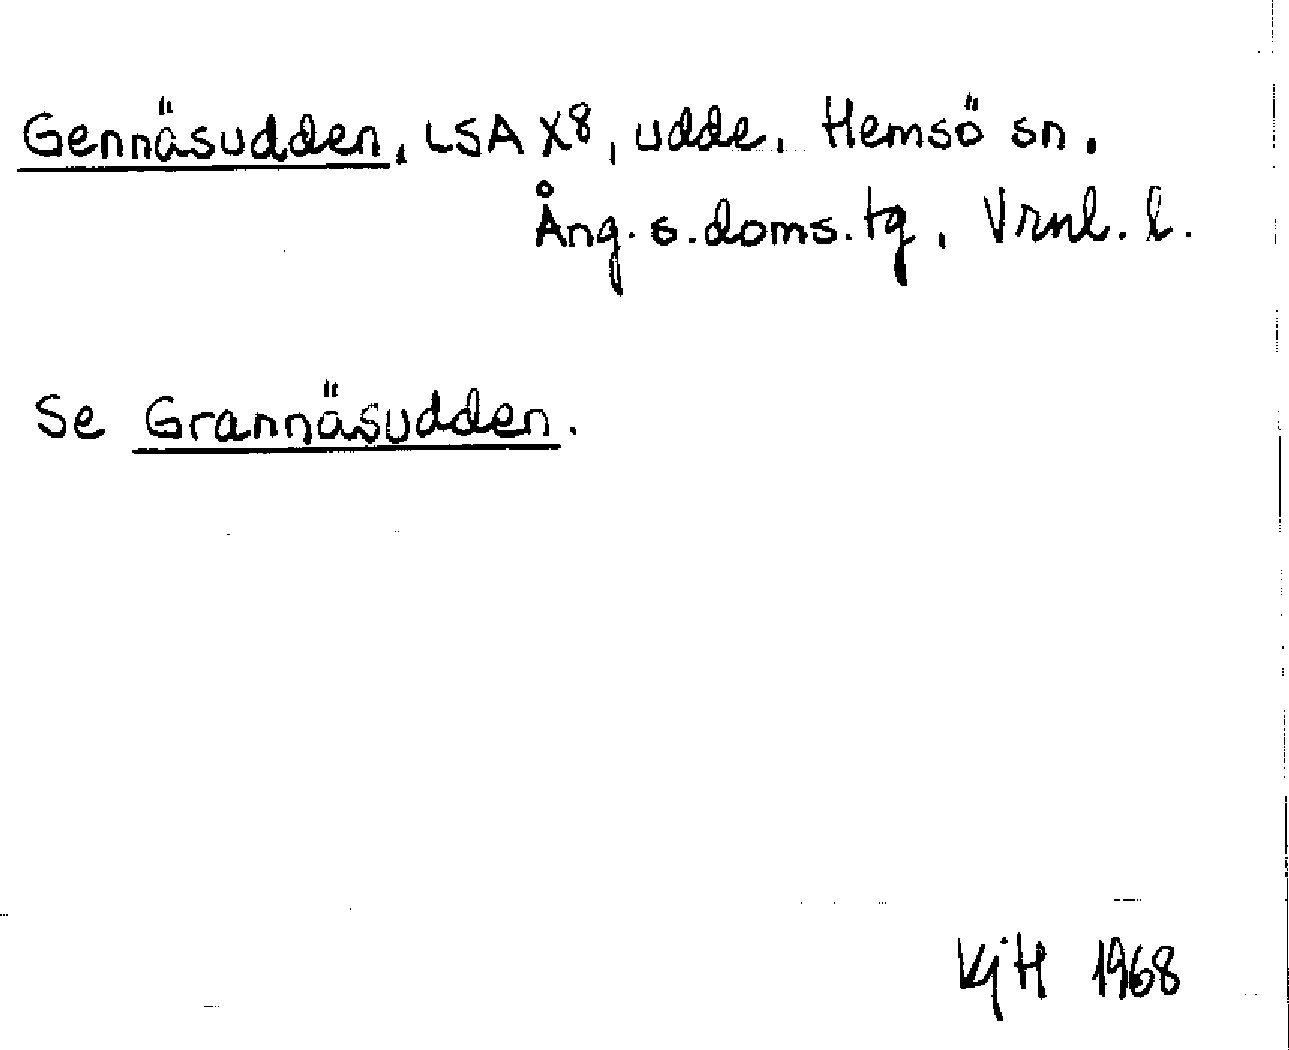 Gennäsudden, LSA X8, udde. Hemsö sn.
Ång. s. doms. tg, Vrnl. l.
Se Grannäsudden.
KjH 1968